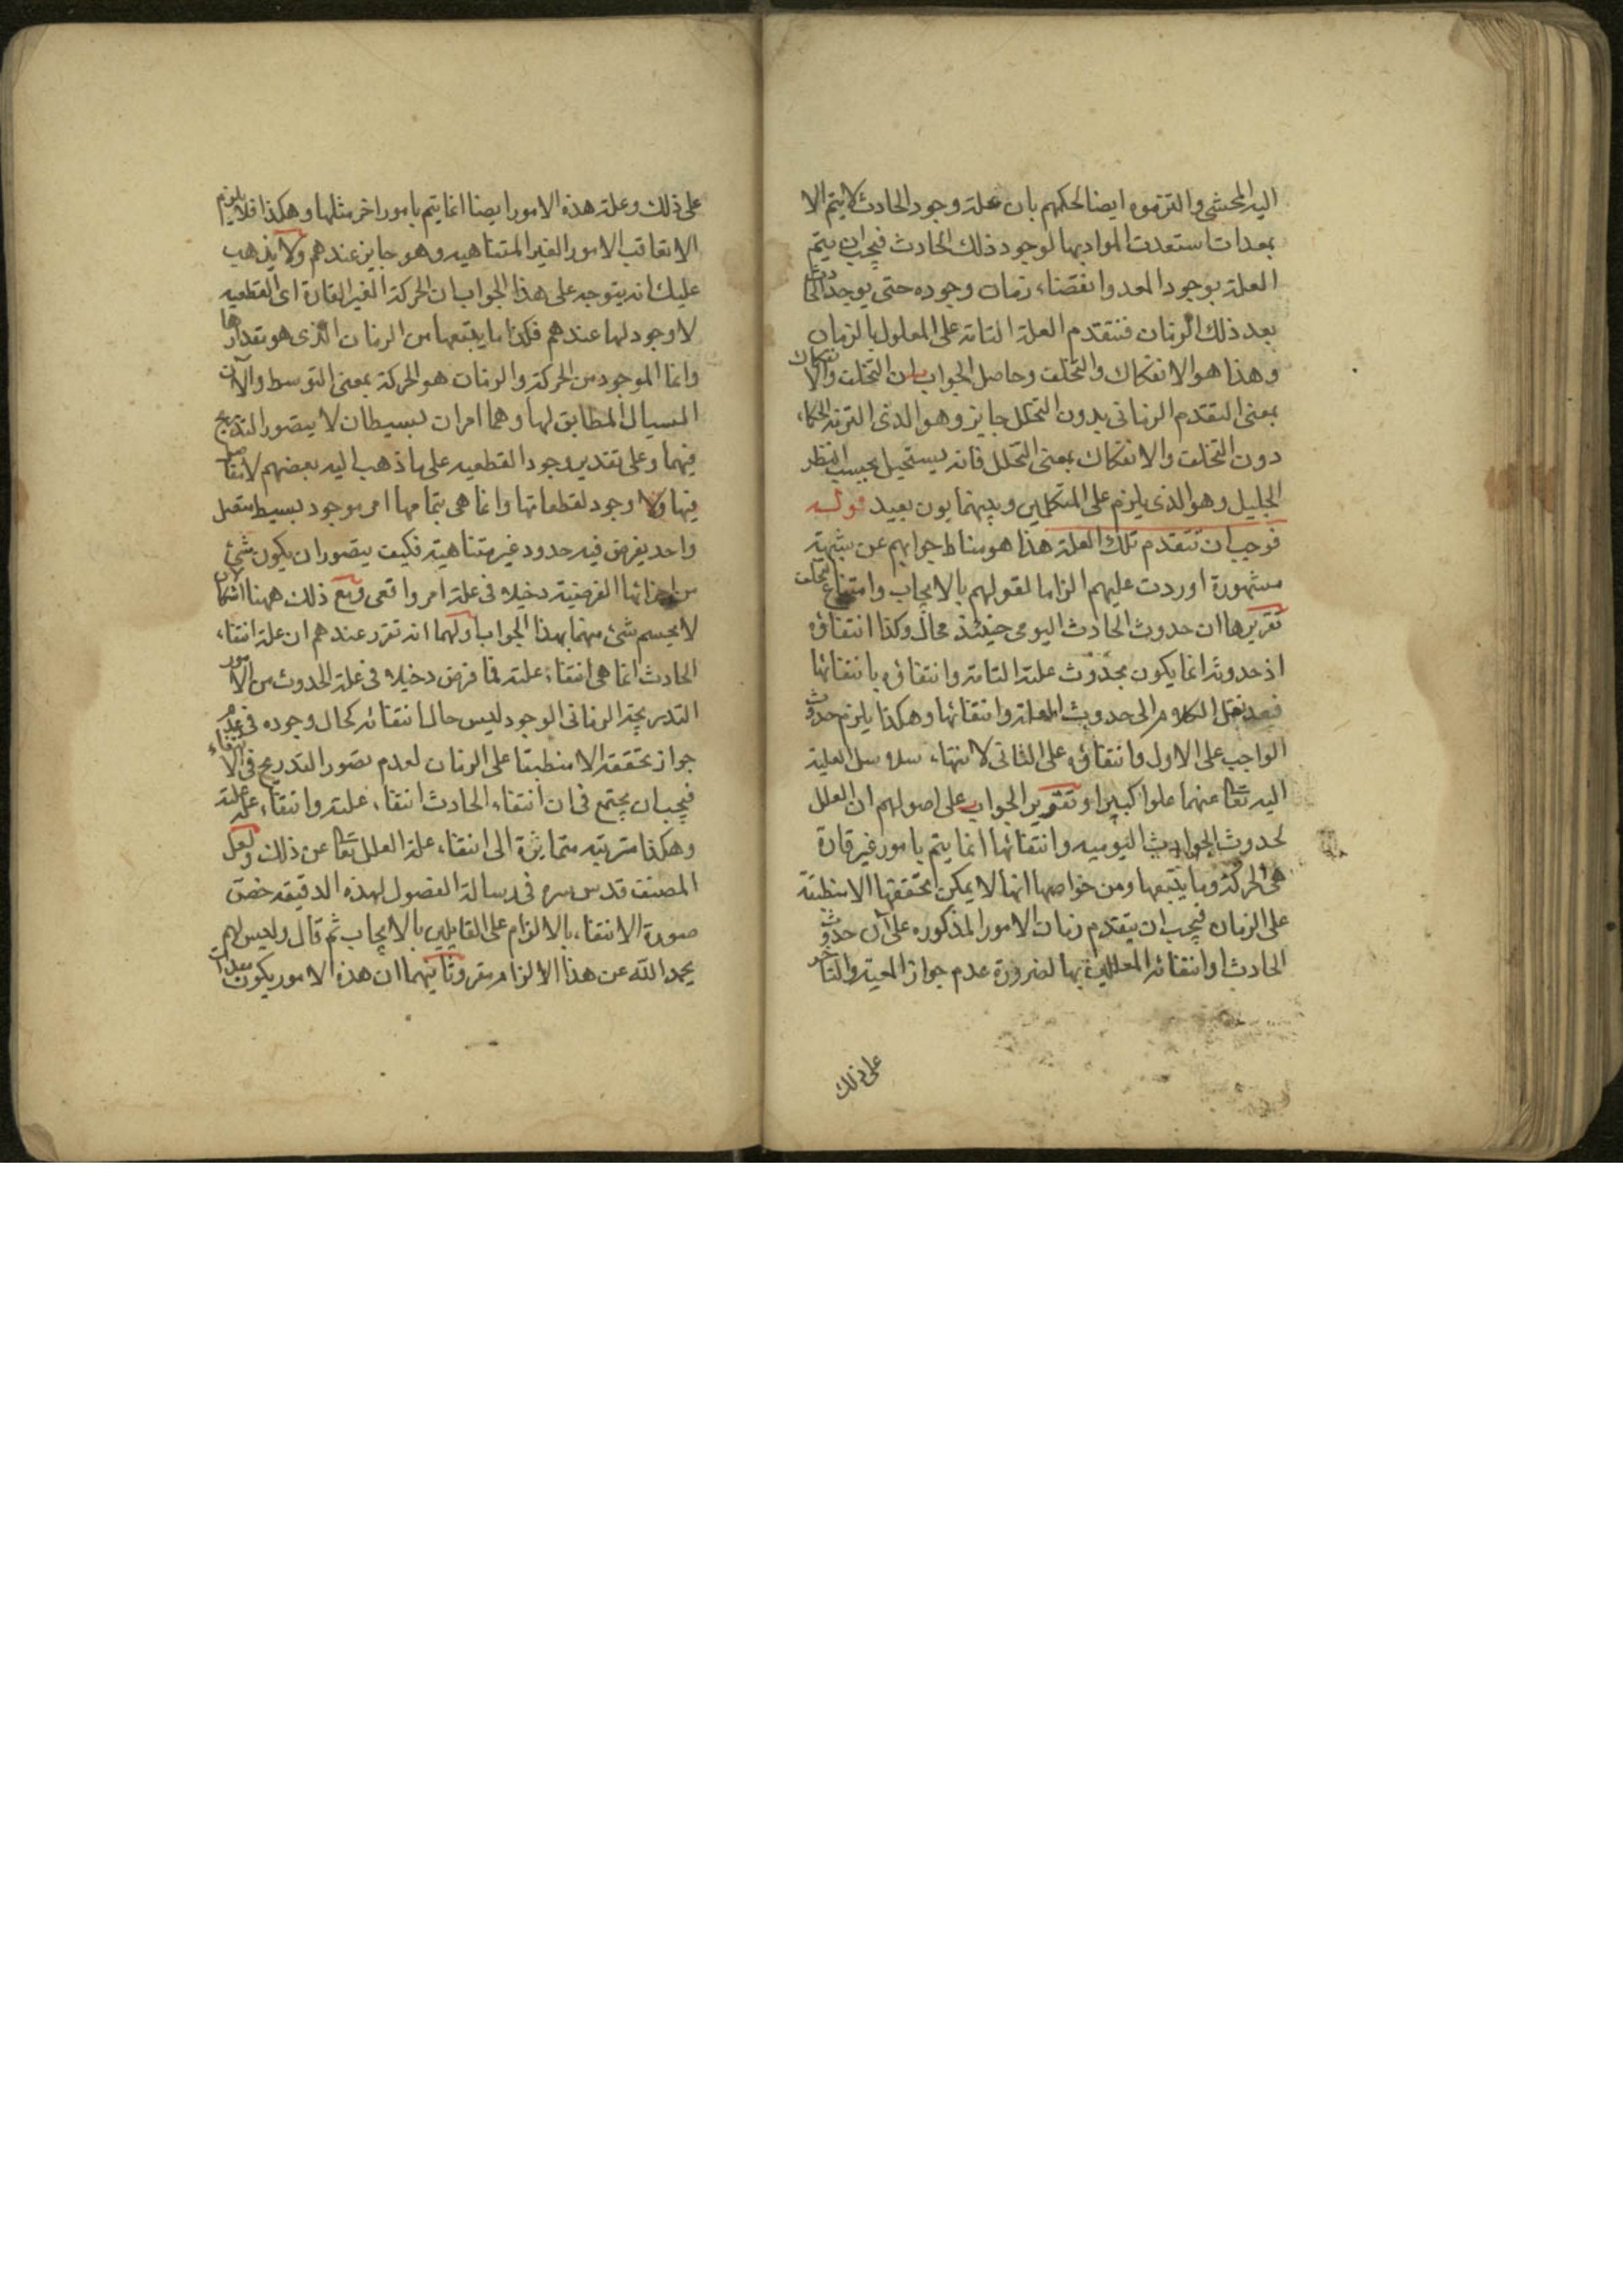 اليه المحشى والتزموه ايضا لحكمهم بان علة وجود الحادث لا يتم الا
بمعدات استعدت المواد بها لوجود ذلك الحادث فيجب ان يتم
العلة بوجود المعد وانقضاء زمان وجوده حتى يوجد الحادث
بعد ذلك الزمان فتتقدم العلة التامة على المعلول بالزمان
وهذا هو الانفكاك والتخلف وحاصل الجواب ان التخلف والانفكاك
بمعنى التقدم الزمانى بدون التخلل جايز وهو الذى التزمه الحكماء
دون التخلف والانفكاك بمعنى التخلل فانه يستحيل بحسب النظر
الجليل وهو الذى يلزم على المتكلمين وبينهما بون بعيد قوله
فوجب ان تتقدم تلك العلة هذا هو مناط جوابهم عن شبهة
مشهورة اوردت عليهم الزاما لقولهم بالايجاب وامتناع التخلف
تقريرها ان حدوث الحادث اليومى حينئذ محال وكذا انتفاؤه
اذ حدوثه انما يكون بحدوث علته التامة وانتفاؤه بانتفائها
فبعد نقل الكلام الى حدوث العلة وانتفائها وهكذا يلزم حدوث
الواجب على الاول وانتفاؤه على الثانى لانتهاء سلاسل العلية
اليه تعا عنهما علوا كبيرا وتقرير الجواب على اصولهم ان العلل
لحدوث الحوادث اليوميه وانتفائها انما يتم بامور غير قارة
هى الحركة وما يتبعها ومن خواصها انها لا يمكن تحققها الا منطبقة
على الزمان فيجب ان يتقدم زمان الامور المذكوره على آن حدوث
الحادث او انتفائه المعللين بها لضرورة عدم جواز المعية والتاخر
على ذلك
على ذلك وعلة هذه الامور ايضا انما يتم بامور اخر مثلها وهكذا فلا يلزم
الا تعاقب الامور الغير المتناهيه وهو جايز عندهم ولا يذهب
عليك انه يتوجه على هذا الجواب ان الحركة الغير القارة اى القطعيه
لا وجود لها عندهم فكذا ما يتبعها من الزمان الذى هو مقدارها
وانما الموجود من الحركة والزمان هو الحركة بمعنى التوسط والآن
السيال المطابق لها وهما امران بسيطان لا يتصور التدريج
فيهما وعلى تقدير وجود القطعيه على ما ذهب اليه بعضهم لا مفاصل
فيها ولا وجود لقطعاتها وانما هى بتمامها امر موجود بسيط متصل
واحد يفرض فيه حدود غير متناهية فكيف يتصور ان يكون شئ
من اجزائها الفرضية دخيلا فى علة امر واقعى ومع ذلك ههنا اشكالان
لا يحسم شئ منهما بهذا الجواب اولهما انه تقرر عندهم ان علة انتفاء
الحادث انما هى انتفاء علته فما فرض دخيلا فى علة الحدوث من الامور
التدريجية الزمانى الوجود ليس حال انتفائه كحال وجوده فى عدم
جواز تحققه الا منطبقا على الزمان لعدم تصور التدريج فى الانتفاء
فيجب ان يجتمع فى ان انتفاء الحادث انتفاء علته وانتفاء علة علته
وهكذا مترتبة متمايزة الى انتفاء علة العلل تعا عن ذلك ولعل
المصنف قدس سره فى رسالة الفصول لهذه الدقيقه خص
صورة الانتفاء بالالزام على القايلين بالايجاب ثم قال وليس لهم
بحمد الله عن هذا الالزام مفر وثانيهما ان هذه الامور يكون معدات